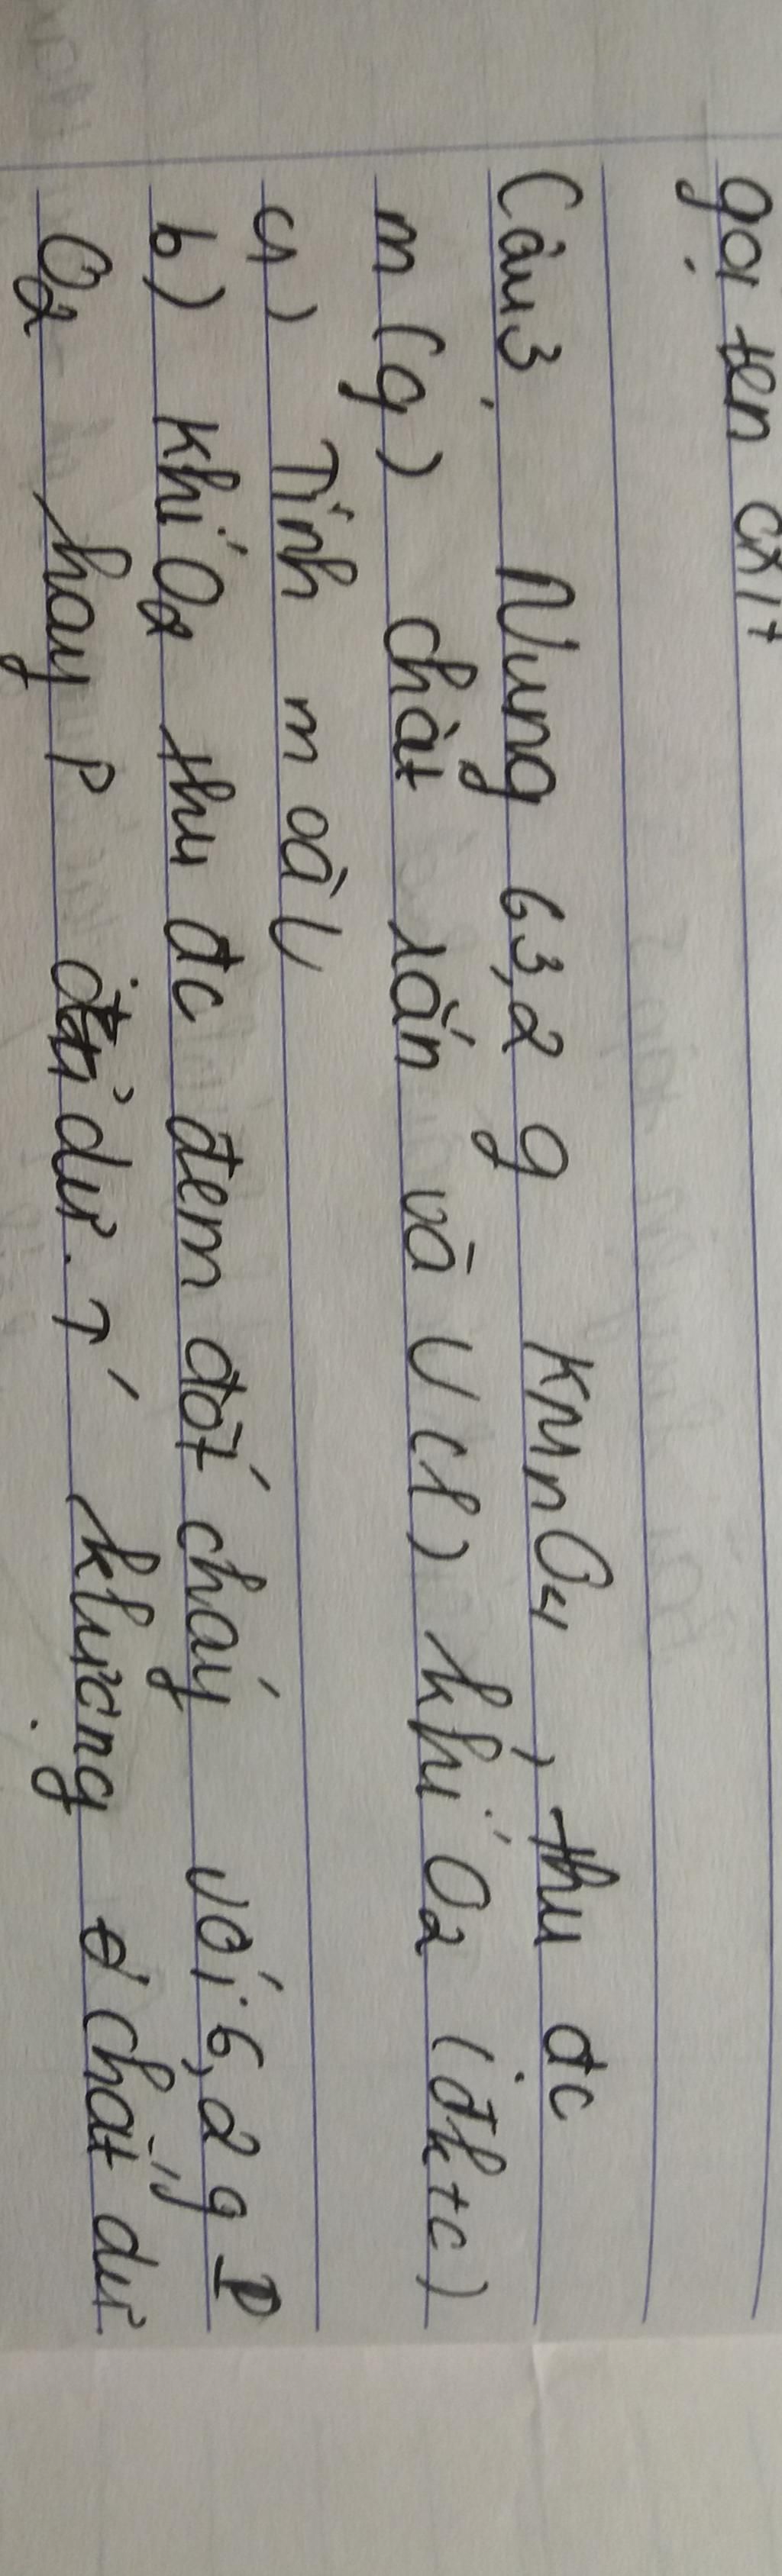 gọi tên oxit
Câu 3, Nung 63,2 g KMnO4, thu đc
m (g) chất rắn và V (l) khí O2 (đktc)
a) Tính m và V
b) Khí O2 thu đc đem đốt cháy với 6,2g P
O2 hay P dư. T' klượng chất dư